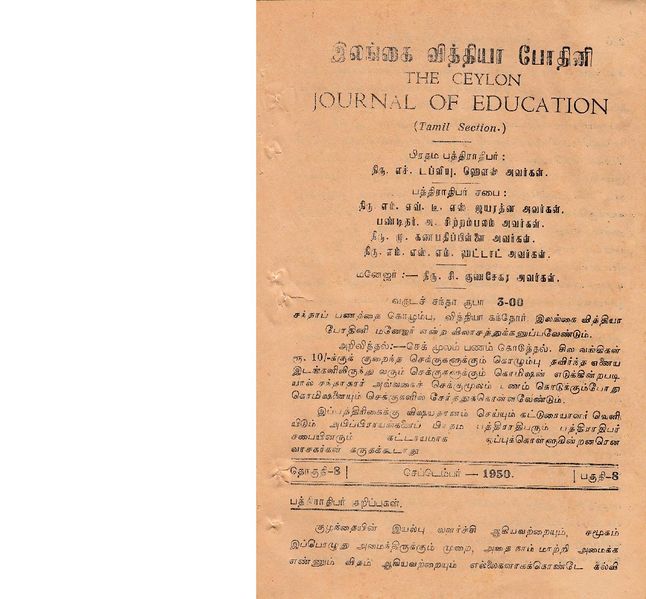 இலங்கை வித்தியா போதினி
THE CEYLON
JOURNAL OF EDUCATION
(Tamil Section.)
பிரதம பத்திராதிபர் :
திரு. எச். டப்ளியு. ஹௌஸ் அவர்கள்.
பத்திராதிபர் சபை :
திரு எம். எவ். டி. எஸ். ஜயரத்ன அவர்கள்.
பண்டிதர். அ. சிற்றம்பலம் அவர்கள்.
திரு. மு. கணபதிப்பிள்ளை அவர்கள்.
திரு. எம். எஸ். எம். ஹட்டாட் அவர்கள்.
மனேஜர் :— திரு. சி. குணசேகர அவர்கள்.
வருடச் சந்தா ரூபா 3-00
சந்தாப் பணத்தை கொழும்பு, வித்தியா கந்தோர். இலங்கை வித்தியா
போதினி மனேஜர் என்ற விலாசத்துக்கனுப்பவேண்டும்.
அறிவித்தல்:—செக் மூலம் பணம் கொடுத்தல். சில வங்கிகள்
ரூ. 10/-க்குக் குறைந்த செக்குகளுக்கும் கொழும்பு தவிர்ந்த ஏனைய
இடங்களிலிருந்து வரும் செக்குகளுக்கும் கொமிஷன் எடுக்கின்றபடி
யால் சந்தாதாரர் அவ்வகைச் செக்குமூலம் பணம் கொடுக்கும்போது
கொமிஷனையும் செக்குகளில் சேர்த்துக்கொள்ளவேண்டும்.
இப்பத்திரிகைக்கு விஷயதானம் செய்யும் கட்டுரையாளர் வெளி
யிடும் அபிப்பிராயங்களைப் பிரதம பத்திராதிபரும் பத்திராதிபர்
சபையினரும் கட்டாயமாக ஒப்புக்கொள்ளுகின்றனரென
வாசகர்கள் கருதக்கூடாது
தொகுதி-8 | செப்டெம்பர் — 1950. | பகுதி-8
பத்திராதிபர் குறிப்புகள்.
குழந்தையின் இயல்பு வளர்ச்சி ஆகியவற்றையும், சமூகம்
இப்பொழுது அமைந்திருக்கும் முறை, அதை நாம் மாற்றி அமைக்க
எண்ணும் விதம் ஆகியவற்றையும் எல்லைகளாகக்கொண்டே கல்வி